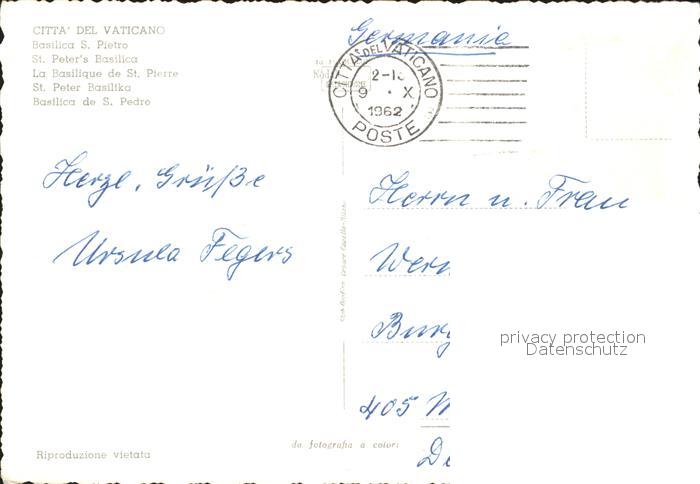 CITTA' DEL VATICANO
Basilica S. Pietro
St. Peter's Basilica
La Basilique de St. Pierre
St. Peter Basilika
Basilica de S. Pedro
Germanie
CITTA' DEL VATICANO
2-1
9 · X
1962
POSTE
Herzl. Grüße
Ursula Fegers
Herrn u. Frau
Wern
Burg
405 M
De
privacy protection
Datenschutz
da fotografia a colori
Riproduzione vietata